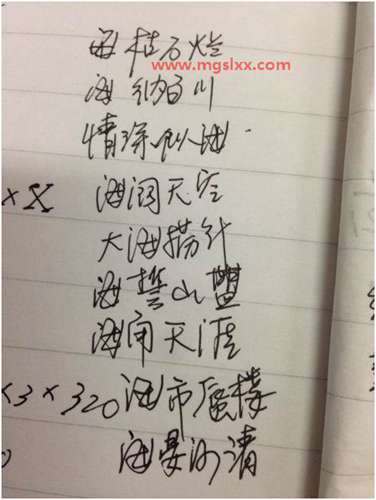 海枯石烂
www.mgslxx.com
海纳百川
情深似海.
×X 海阔天空
大海捞针
海誓山盟
海角天涯
×3×320 海市蜃楼
海晏河清